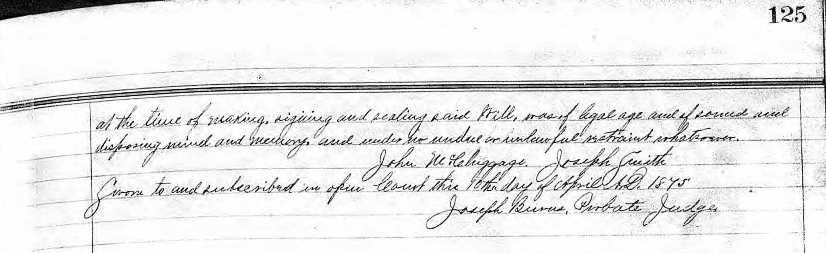 125
at the time of making, signing and sealing said Will, was of legal age and of sound and
disposing mind and memory, and under no undue or unlawful restraint whatsoever.
John McCluggage Joseph Smith
Sworn to and subscribed in open Court this 10th day of April A.D. 1875
Joseph Burns, Probate Judge